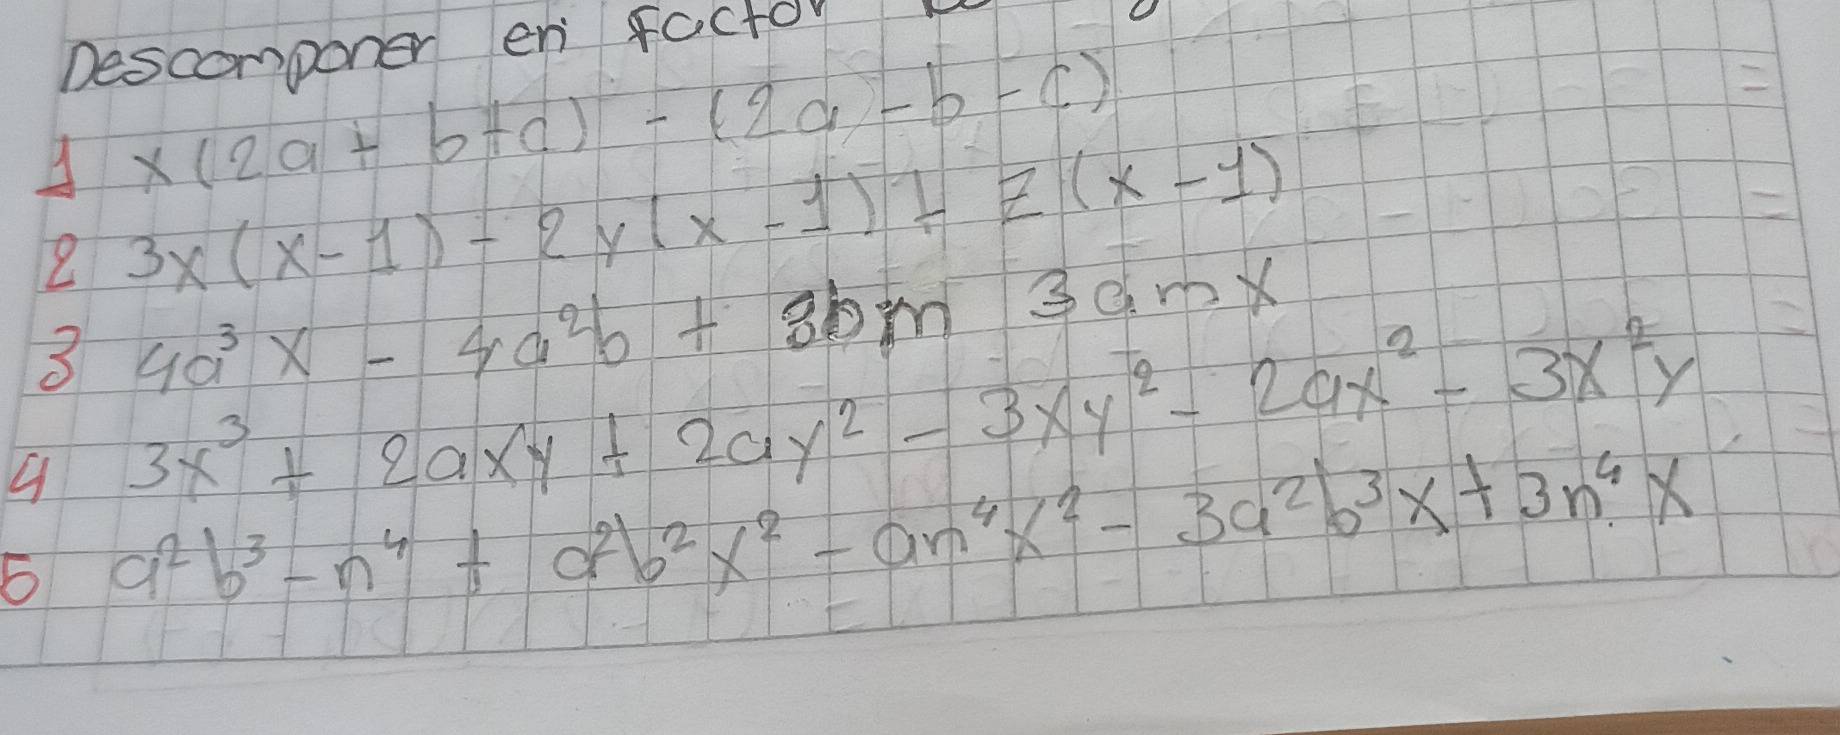 Descomponer en factor
1 x(2a + b + c) - (2a - b - c)
2 3x(x - 1) - 2y(x - 1) + z(x - 1)
3 4a³x - 4a²b + 3bm 3amx
4 3x³ + 2axy + 2ay² - 3xy² - 2ax² - 3x²y
5 a²b³ - n⁴ + a²b²x² - an⁴x² - 3a²b³x + 3n⁴x